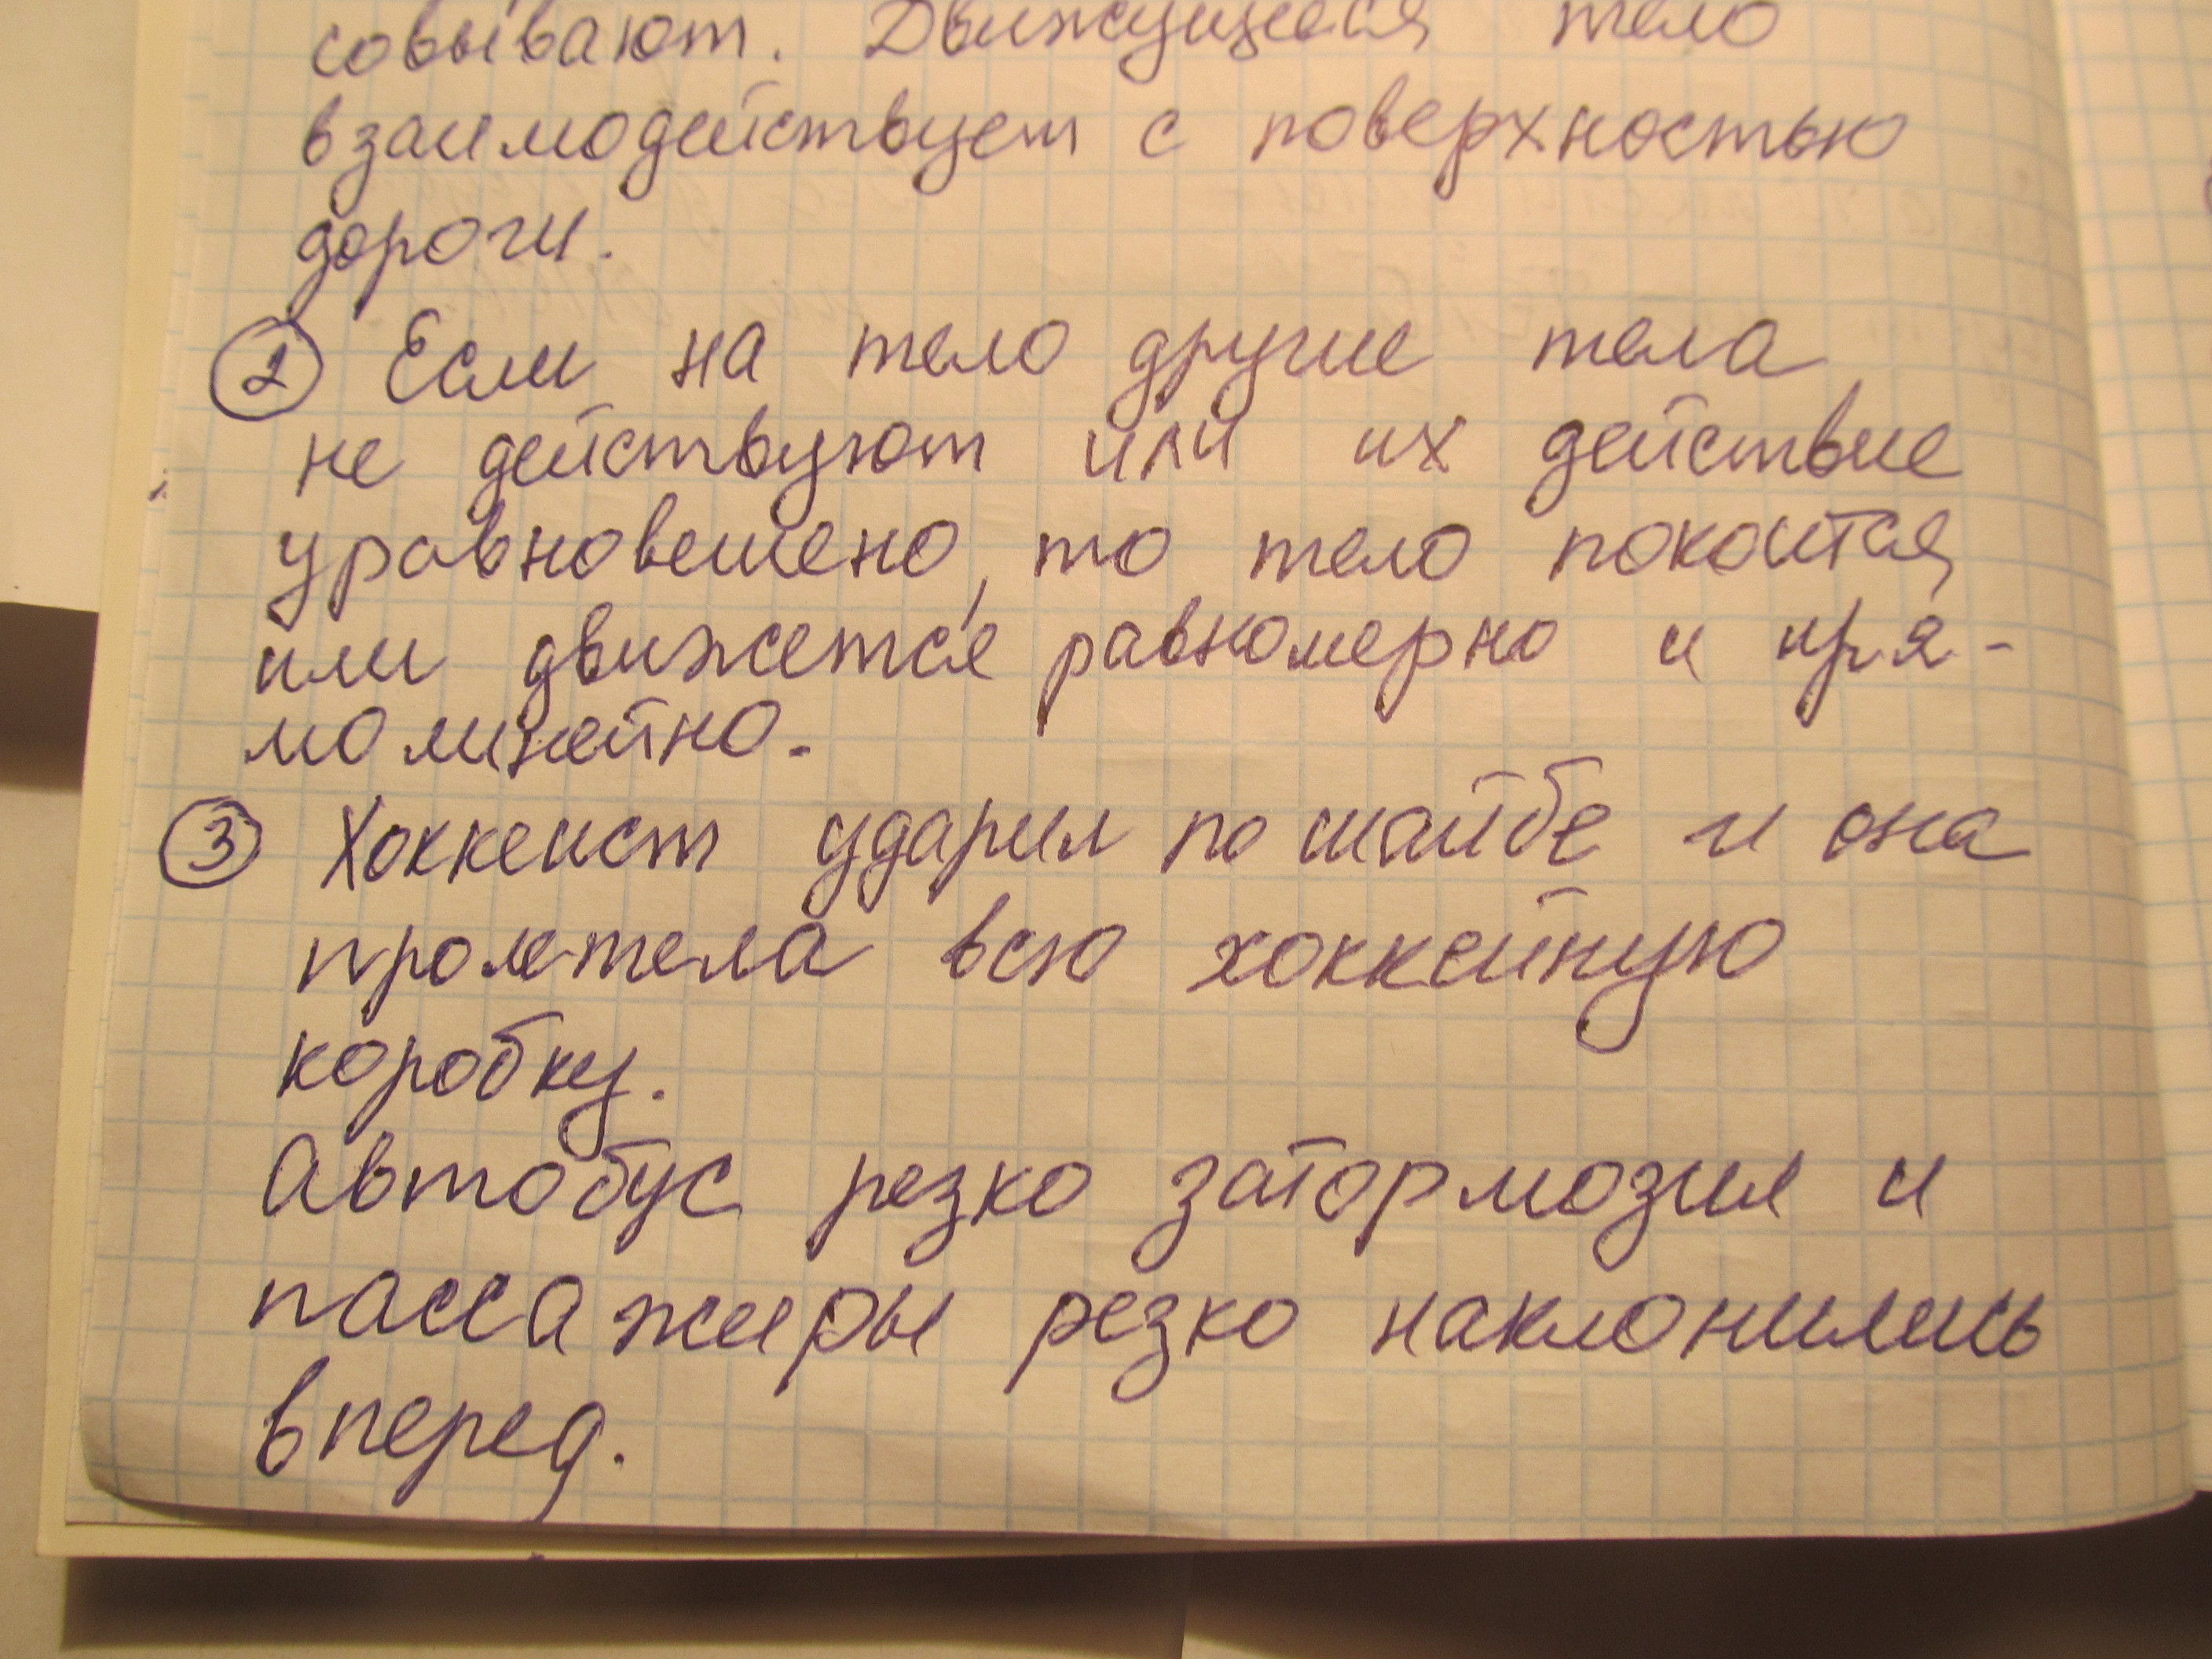 совывают. Движущееся тело
взаимодействует с поверхностью
дороги.
2 Если на тело другие тела
не действуют или их действие
уравновешено, то тело покоится
или движется равномерно и пря-
молинейно.
3 Хоккеист ударил по шайбе и она
пролетела всю хоккейную
коробку.
Автобус резко затормозил и
пассажиры резко наклонились
вперед.